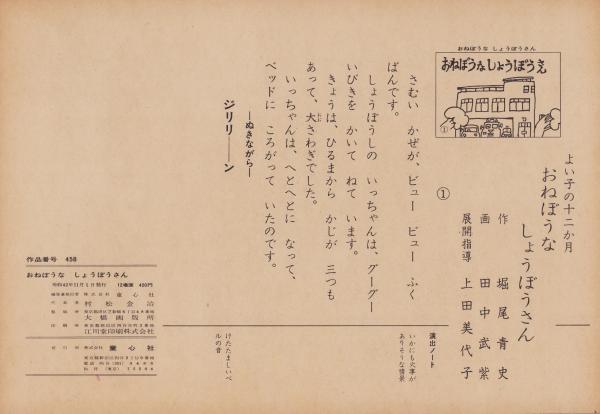 おねぼうな しょうぼうさん
おねぼうなしょうぼうさん
①
よい子の十二か月
おねぼうな
しょうぼうさん
作 堀尾青史
画 田中武紫
展開指導 上田美代子
①
さむい かぜが、ビュー ビュー ふく
ばんです。
しょうぼうしの いっちゃんは、グーグー
いびきを かいて ねて います。
きょうは、ひるまから かじが 三つも
あって、大さわぎでした。
いっちゃんは、へとへとに なって、
ベッドに ころがって いたのです。
―ぬきながら―
ジリリ――ン
演出ノート
いかにも火事が
ありそうな情景
けたたましいベ
ルの音
作品番号 458
おねぼうな しょうぼうさん
昭和42年11月1日発行 12場面 400円
編集兼発行 株式会社 童心社
代表者 村松金治
大橋画版所
印刷所
江川堂印刷株式会社
発行所 株式会社 童心社